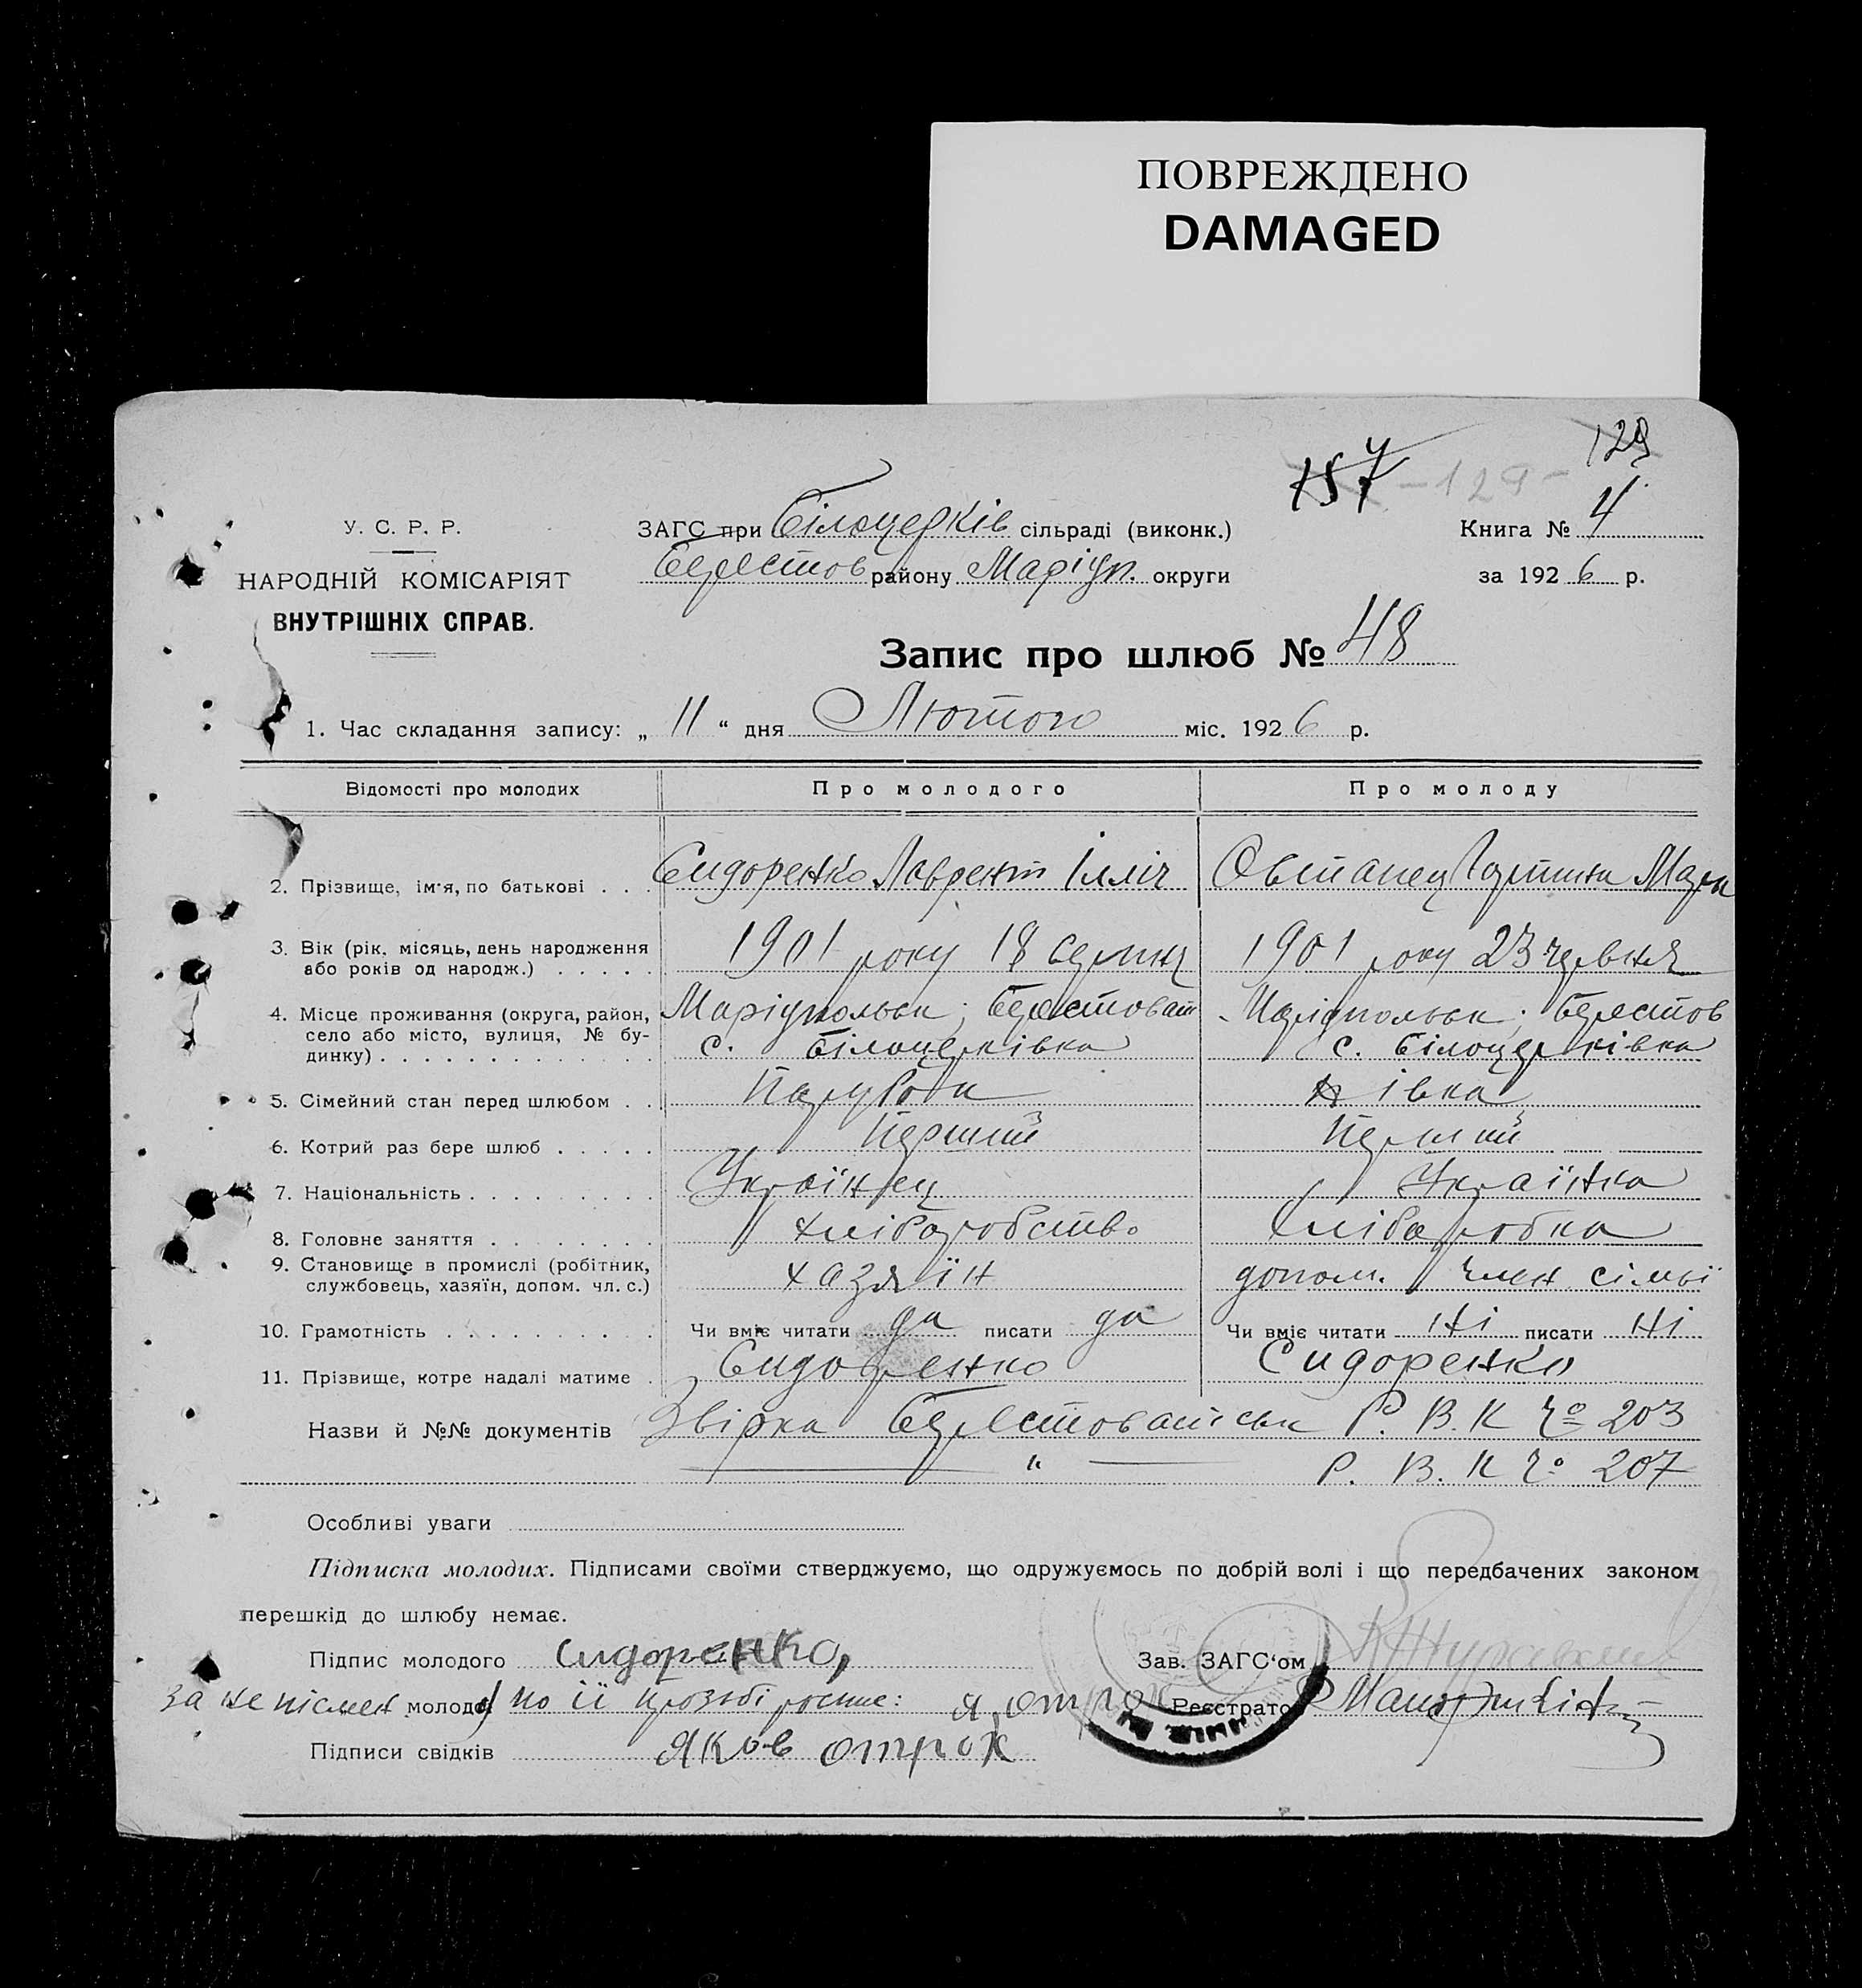 ПОВРЕЖДЕНО
DAMAGED
129
157 -129-
У. С. Р. Р.
НАРОДНІЙ КОМІСАРІЯТ
ВНУТРІШНІХ СПРАВ.
ЗАГС при Білоцерків сільраді (виконк.)
Берестов району Маріуп. округи
Книга № 4
за 1926 р.
Запис про шлюб № 48
1. Час складання запису: „ 11 “ дня Лютого міс. 1926 р.
Відомості про молодих Про молодого Про молоду
2. Прізвище, ім'я, по батькові . . . Сидоренко Лаврент Ілліч Овстанец Мари
3. Вік (рік, місяць, день народження
або років од народж.) . . . . . 1901 року 18 серпня 1901 року 23 червня
4. Місце проживання (округа, район, Маріупольськ; Берестоват Маріупольськ; Берестов
село або місто, вулиця, № бу-
динку) . . . . . . . . . . . . с. Білоцерківка с. Білоцерківка
5. Сімейний стан перед шлюбом . . Парубок дівка
6. Котрий раз бере шлюб . . . . . Перший Перший
7. Національність . . . . . . . . . Українец Українка
8. Головне заняття . . . . . . . . хліборобство хліборобка
9. Становище в промислі (робітник,
службовець, хазяїн, допом. чл. с.) хазяїн допом. член сімьї
10. Грамотність . . . . . . . . . . Чи вміє читати да писати да Чи вміє читати ні писати ні
11. Прізвище, котре надалі матиме . Сидоренко Сидоренко
Назви й №№ документів Звірка Берестоватськ Р. В. К № 203
" Р. В. К № 207
Особливі уваги
Підписка молодих. Підписами своїми стверджуємо, що одружуємось по добрій волі і що передбачених законом
перешкід до шлюбу немає.
Підпис молодого Сидоренко, Зав. ЗАГС'ом
За неписмен молоду по її прозьбі росписе: я, отрок Реєстратор
Підписи свідків Яков отрок